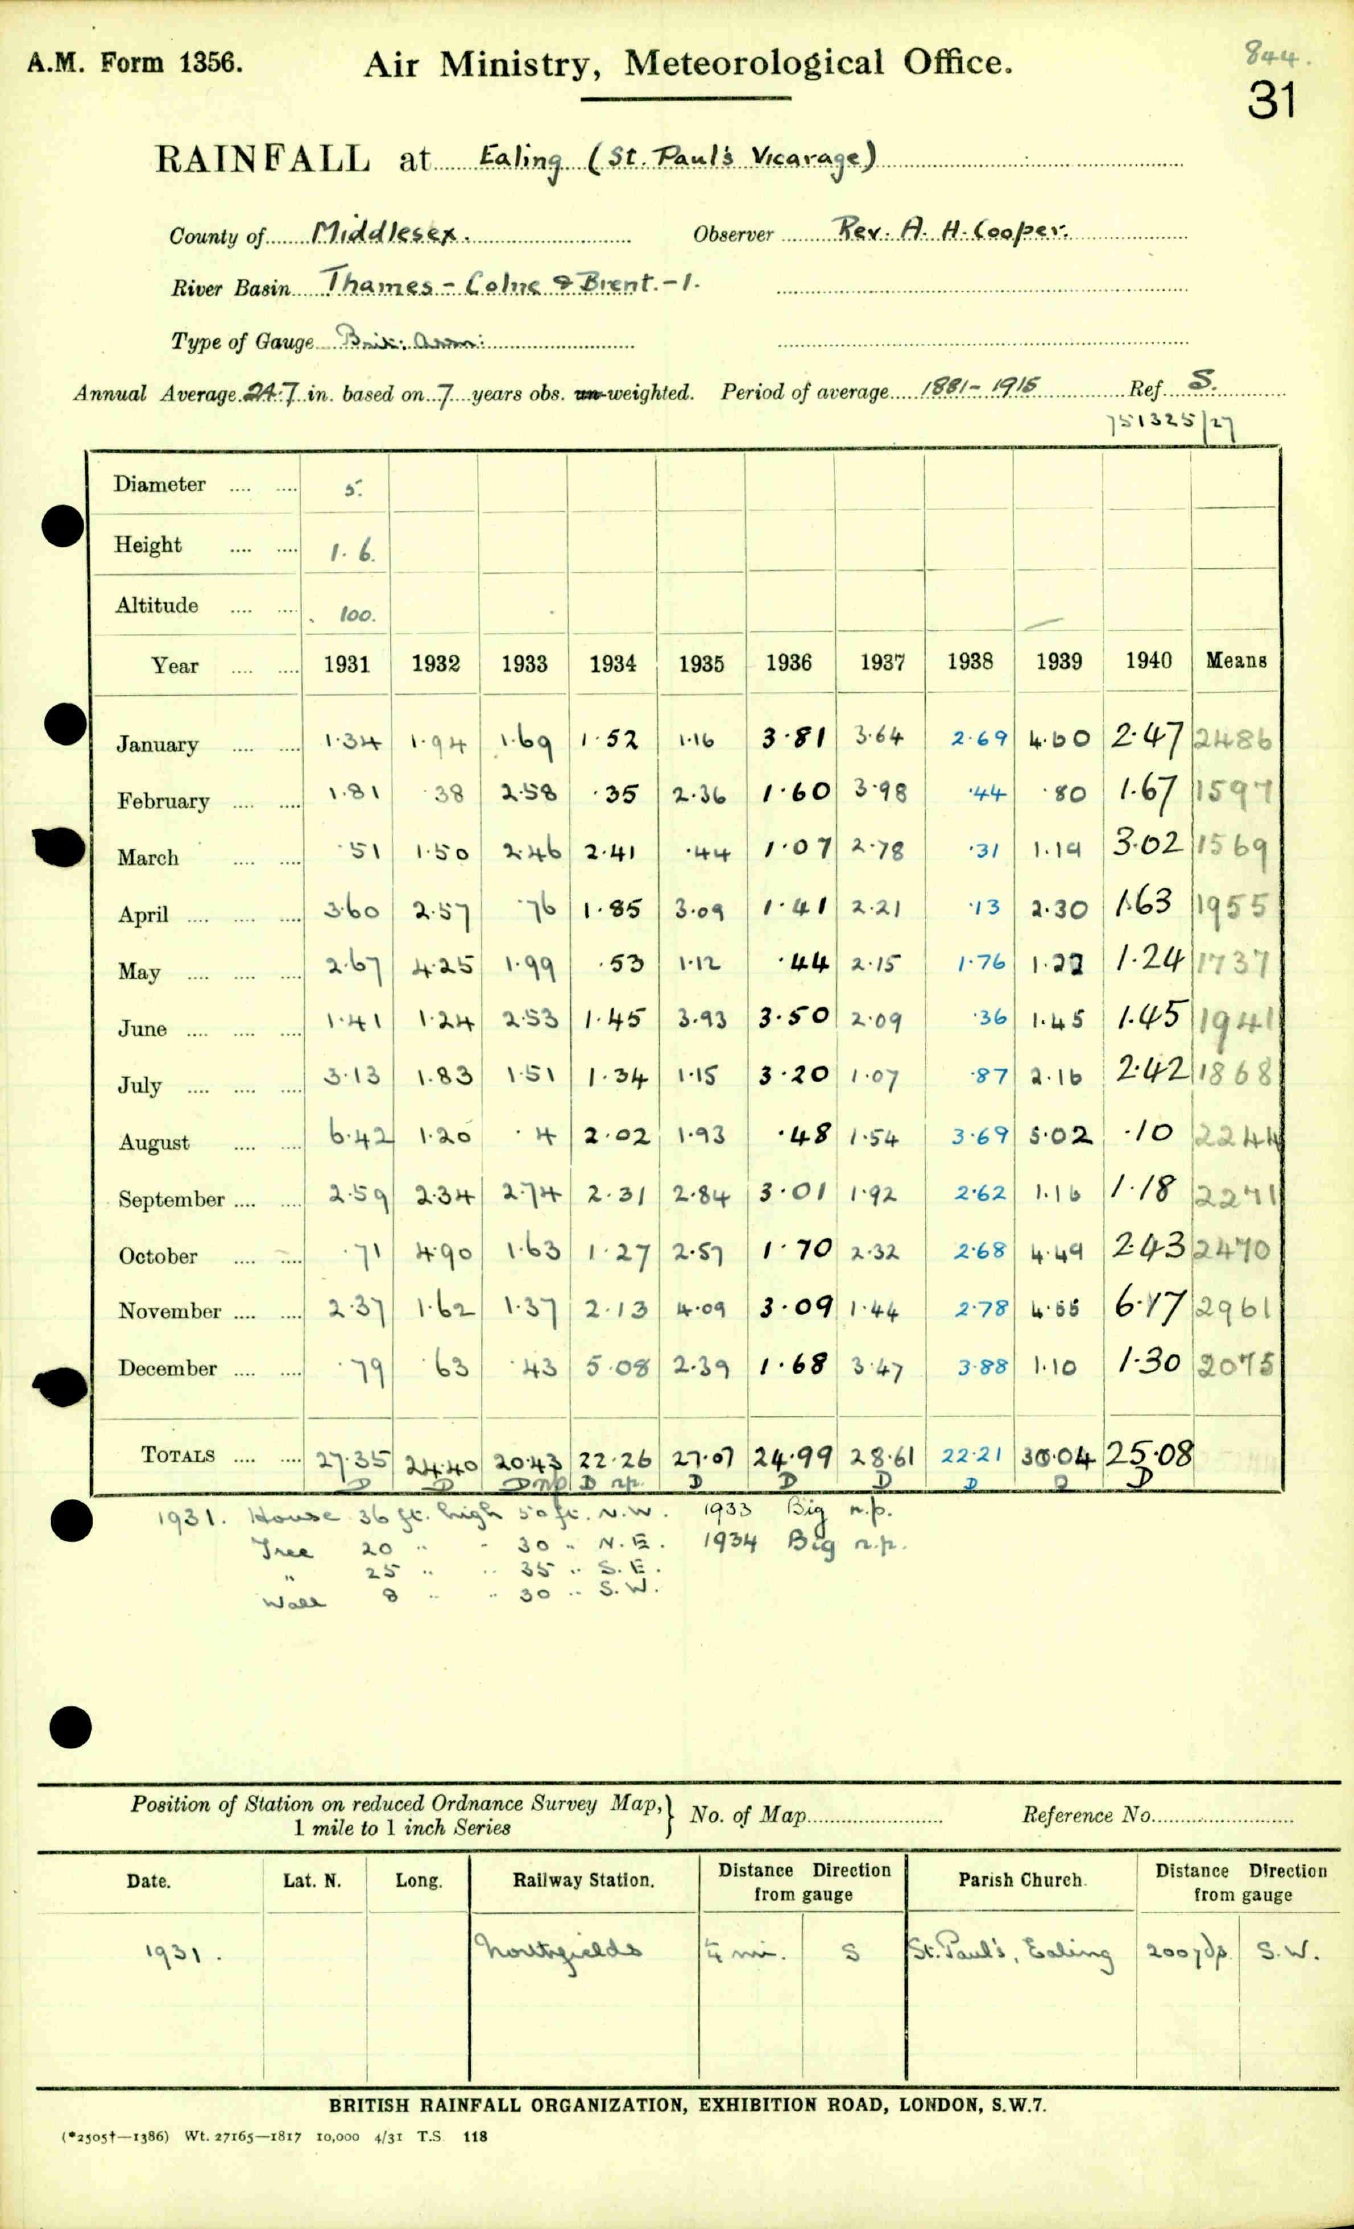 844.
A.M. Form 1356. Air Ministry, Meteorological Office. 31
RAINFALL at Ealing (St. Paul's Vicarage)
County of Middlesex. Observer Rev. A. H. Cooper.
River Basin Thames - Colne & Brent. - 1.
Type of Gauge
Annual Average 24.7 in. based on 7 years obs. un-weighted. Period of average 1881-1915 Ref S.
751325/27
Diameter 5.
Height 1. 6.
Altitude 100.
Year 1931 1932 1933 1934 1935 1936 1937 1938 1939 1940 Means
January 1.34 1.94 1.69 1.52 1.16 3.81 3.64 2.69 4.60 2.47 2486
February 1.81 .38 2.58 .35 2.36 1.60 3.98 .44 .80 1.67 1597
March .51 1.50 2.46 2.41 .44 1.07 2.78 .31 1.19 3.02 1569
April 3.60 2.57 .76 1.85 3.09 1.41 2.21 .13 2.30 1.63 1955
May 2.67 4.25 1.99 .53 1.12 .44 2.15 1.76 1.22 1.24 1737
June 1.41 1.24 2.53 1.45 3.93 3.50 2.09 .36 1.45 1.45 1941
July 3.13 1.83 1.51 1.34 1.15 3.20 1.07 .87 2.16 2.42 1868
August 6.42 1.20 2.02 1.93 .48 1.54 3.69 5.02 .10 2244
September 2.59 2.34 2.74 2.31 2.84 3.01 1.92 2.62 1.16 1.18 2271
October .71 4.90 1.63 1.27 2.57 1.70 2.32 2.68 4.49 2.43 2470
November 2.37 1.62 1.37 2.13 4.09 3.09 1.44 2.78 4.55 6.17 2961
December .79 .63 .43 5.08 2.39 1.68 3.47 3.88 1.10 1.30 2075
TOTALS 27.35 24.40 20.43 22.26 27.07 24.99 28.61 22.21 30.04 25.08
D D D np D n.p. D D D D D D
1931. House 36 ft. high 50 ft. N.W. 1933 Big n.p.
Tree 20 " " 30 " N.E. 1934 Big n.p.
" 25 " " 35 " S.E.
Wall 8 " " 30 " S.W.
Position of Station on reduced Ordnance Survey Map, } No. of Map Reference No.
1 mile to 1 inch Series
Date. Lat. N. Long. Railway Station. Distance Direction from gauge Parish Church. Distance Direction from gauge
1931. Northfields ¼ mi. S St. Paul's, Ealing 200 yds S.W.
BRITISH RAINFALL ORGANIZATION, EXHIBITION ROAD, LONDON, S.W.7.
(*2505†—1386) Wt. 27165—1817 10,000 4/31 T.S. 118